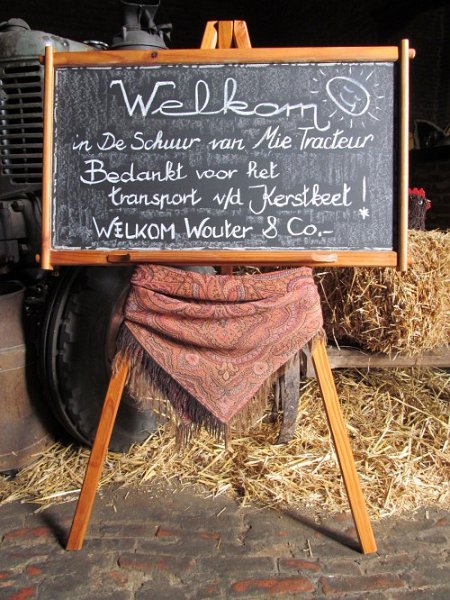 Welkom
in De Schuur van Mie Tracteur
Bedankt voor het
transport v/d Kerstkeet!
WELKOM Wouter & Co,-